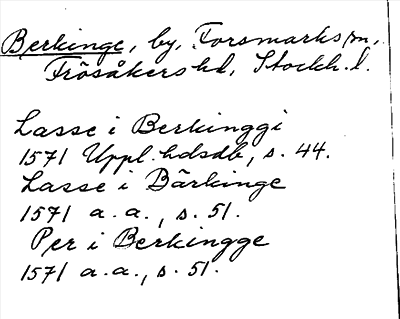 Berkinge, by, Forsmarks sn,
Frösåkers hd, Stockh. l.
Lasse i Berkinggi
1571 Uppl. hdsdb, s. 44.
Lasse i Bärkinge
1571 a. a., s. 51.
Per i Berkingge
1571 a. a., s. 51.